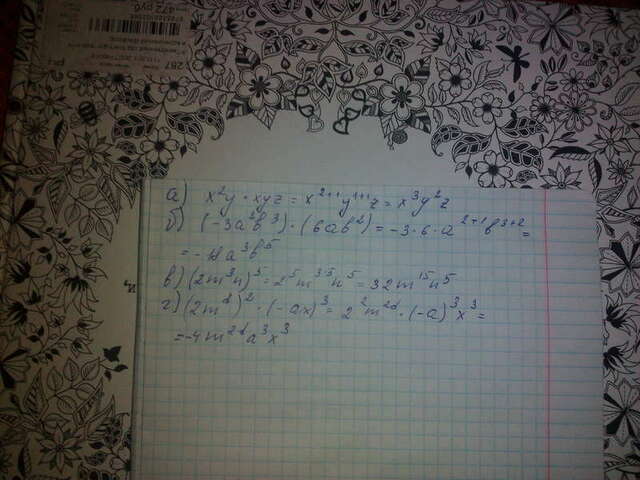 а) x²y · xyz = x²⁺¹y¹⁺¹z = x³y²z
б) (-3a²b³) · (6ab²) = -3·6·a²⁺¹b³⁺² =
= -18a³b⁵
в) (2m³n)⁵ = 2⁵m³·⁵n⁵ = 32m¹⁵n⁵
г) (2m^d)² · (-ax)³ = 2²m^2d · (-a)³x³ =
= -4m^2d a³x³